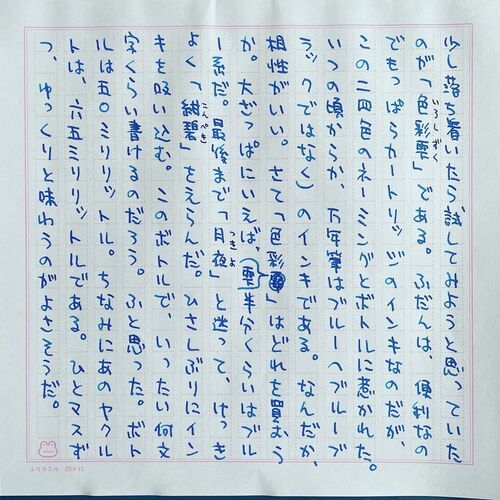 少し落ち着いたら、試してみようと思っていた
のが「色彩雫」である。ふだんは、便利なの
いろしずく
でもっぱらカートリッジのインキなのだが、
この二四色のネーミングとボトルに惹かれた。
いつの頃からか、万年筆はブルー(ブルーブ
ラックではなく)のインキである。なんだか、
相性がいい。さて「色彩雫」はどれを買おう
か。大ざっぱにいえば、半分くらいはブル
ー系だ。最後まで「月夜」と迷って、けっき
つきよ
よく「紺碧」をえらんだ。ひさしぶりにイン
こんぺき
キを吸い込む。このボトルで、いったい何文
字くらい書けるのだろう。ふと思った。ボト
ルは五〇ミリリットル。ちなみにあのヤクル
トは、六五ミリリットルである。ひとマスず
つ、ゆっくりと味わうのがよさそうだ。
ふりカエル 20×15